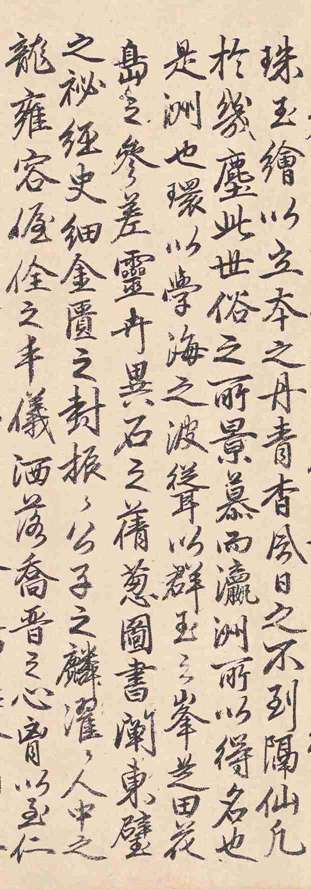 珠玉繪以立本之丹青杳風日之不到隔仙凡
於幾塵此世俗之所景慕而瀛洲所以得名也
是洲也環以學海之波聳以群玉之峯芝田花
島之參差靈卉異石之蒨蔥圖書闡東壁
之祕經史紬金匱之封振〻公子之麟濯〻人中之
龍雍容偓佺之丰儀洒落喬晋之心胷以至仁